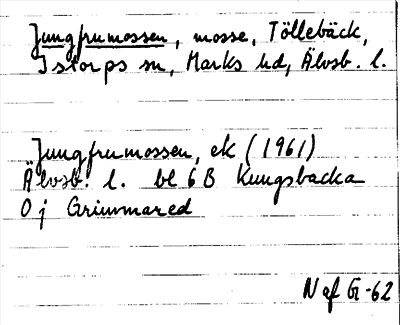 Jungfrumossen, mosse, Töllebäck,
Istorps sn, Marks hd, Älvsb. l.
Jungfrumossen, ek (1961)
Älvsb. l. bl 6B Kungsbacka
0 j Grimmared
N af G-62